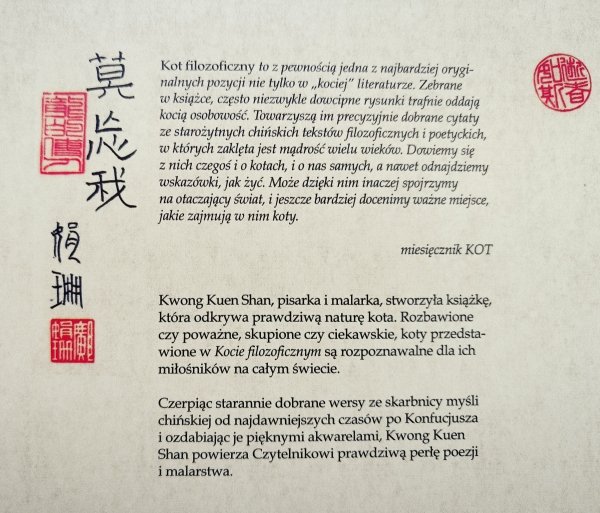 莫忘我
娟珊
Kot filozoficzny to z pewnością jedna z najbardziej orygi-
nalnych pozycji nie tylko w „kociej” literaturze. Zebrane
w książce, często niezwykle dowcipne rysunki trafnie oddają
kocią osobowość. Towarzyszą im precyzyjnie dobrane cytaty
ze starożytnych chińskich tekstów filozoficznych i poetyckich,
w których zaklęta jest mądrość wielu wieków. Dowiemy się
z nich czegoś i o kotach, i o nas samych, a nawet odnajdziemy
wskazówki, jak żyć. Może dzięki nim inaczej spojrzymy
na otaczający świat, i jeszcze bardziej docenimy ważne miejsce,
jakie zajmują w nim koty.
miesięcznik KOT
Kwong Kuen Shan, pisarka i malarka, stworzyła książkę,
która odkrywa prawdziwą naturę kota. Rozbawione
czy poważne, skupione czy ciekawskie, koty przedsta-
wione w Kocie filozoficznym są rozpoznawalne dla ich
miłośników na całym świecie.
Czerpiąc starannie dobrane wersy ze skarbnicy myśli
chińskiej od najdawniejszych czasów po Konfucjusza
i ozdabiając je pięknymi akwarelami, Kwong Kuen
Shan powierza Czytelnikowi prawdziwą perłę poezji
i malarstwa.